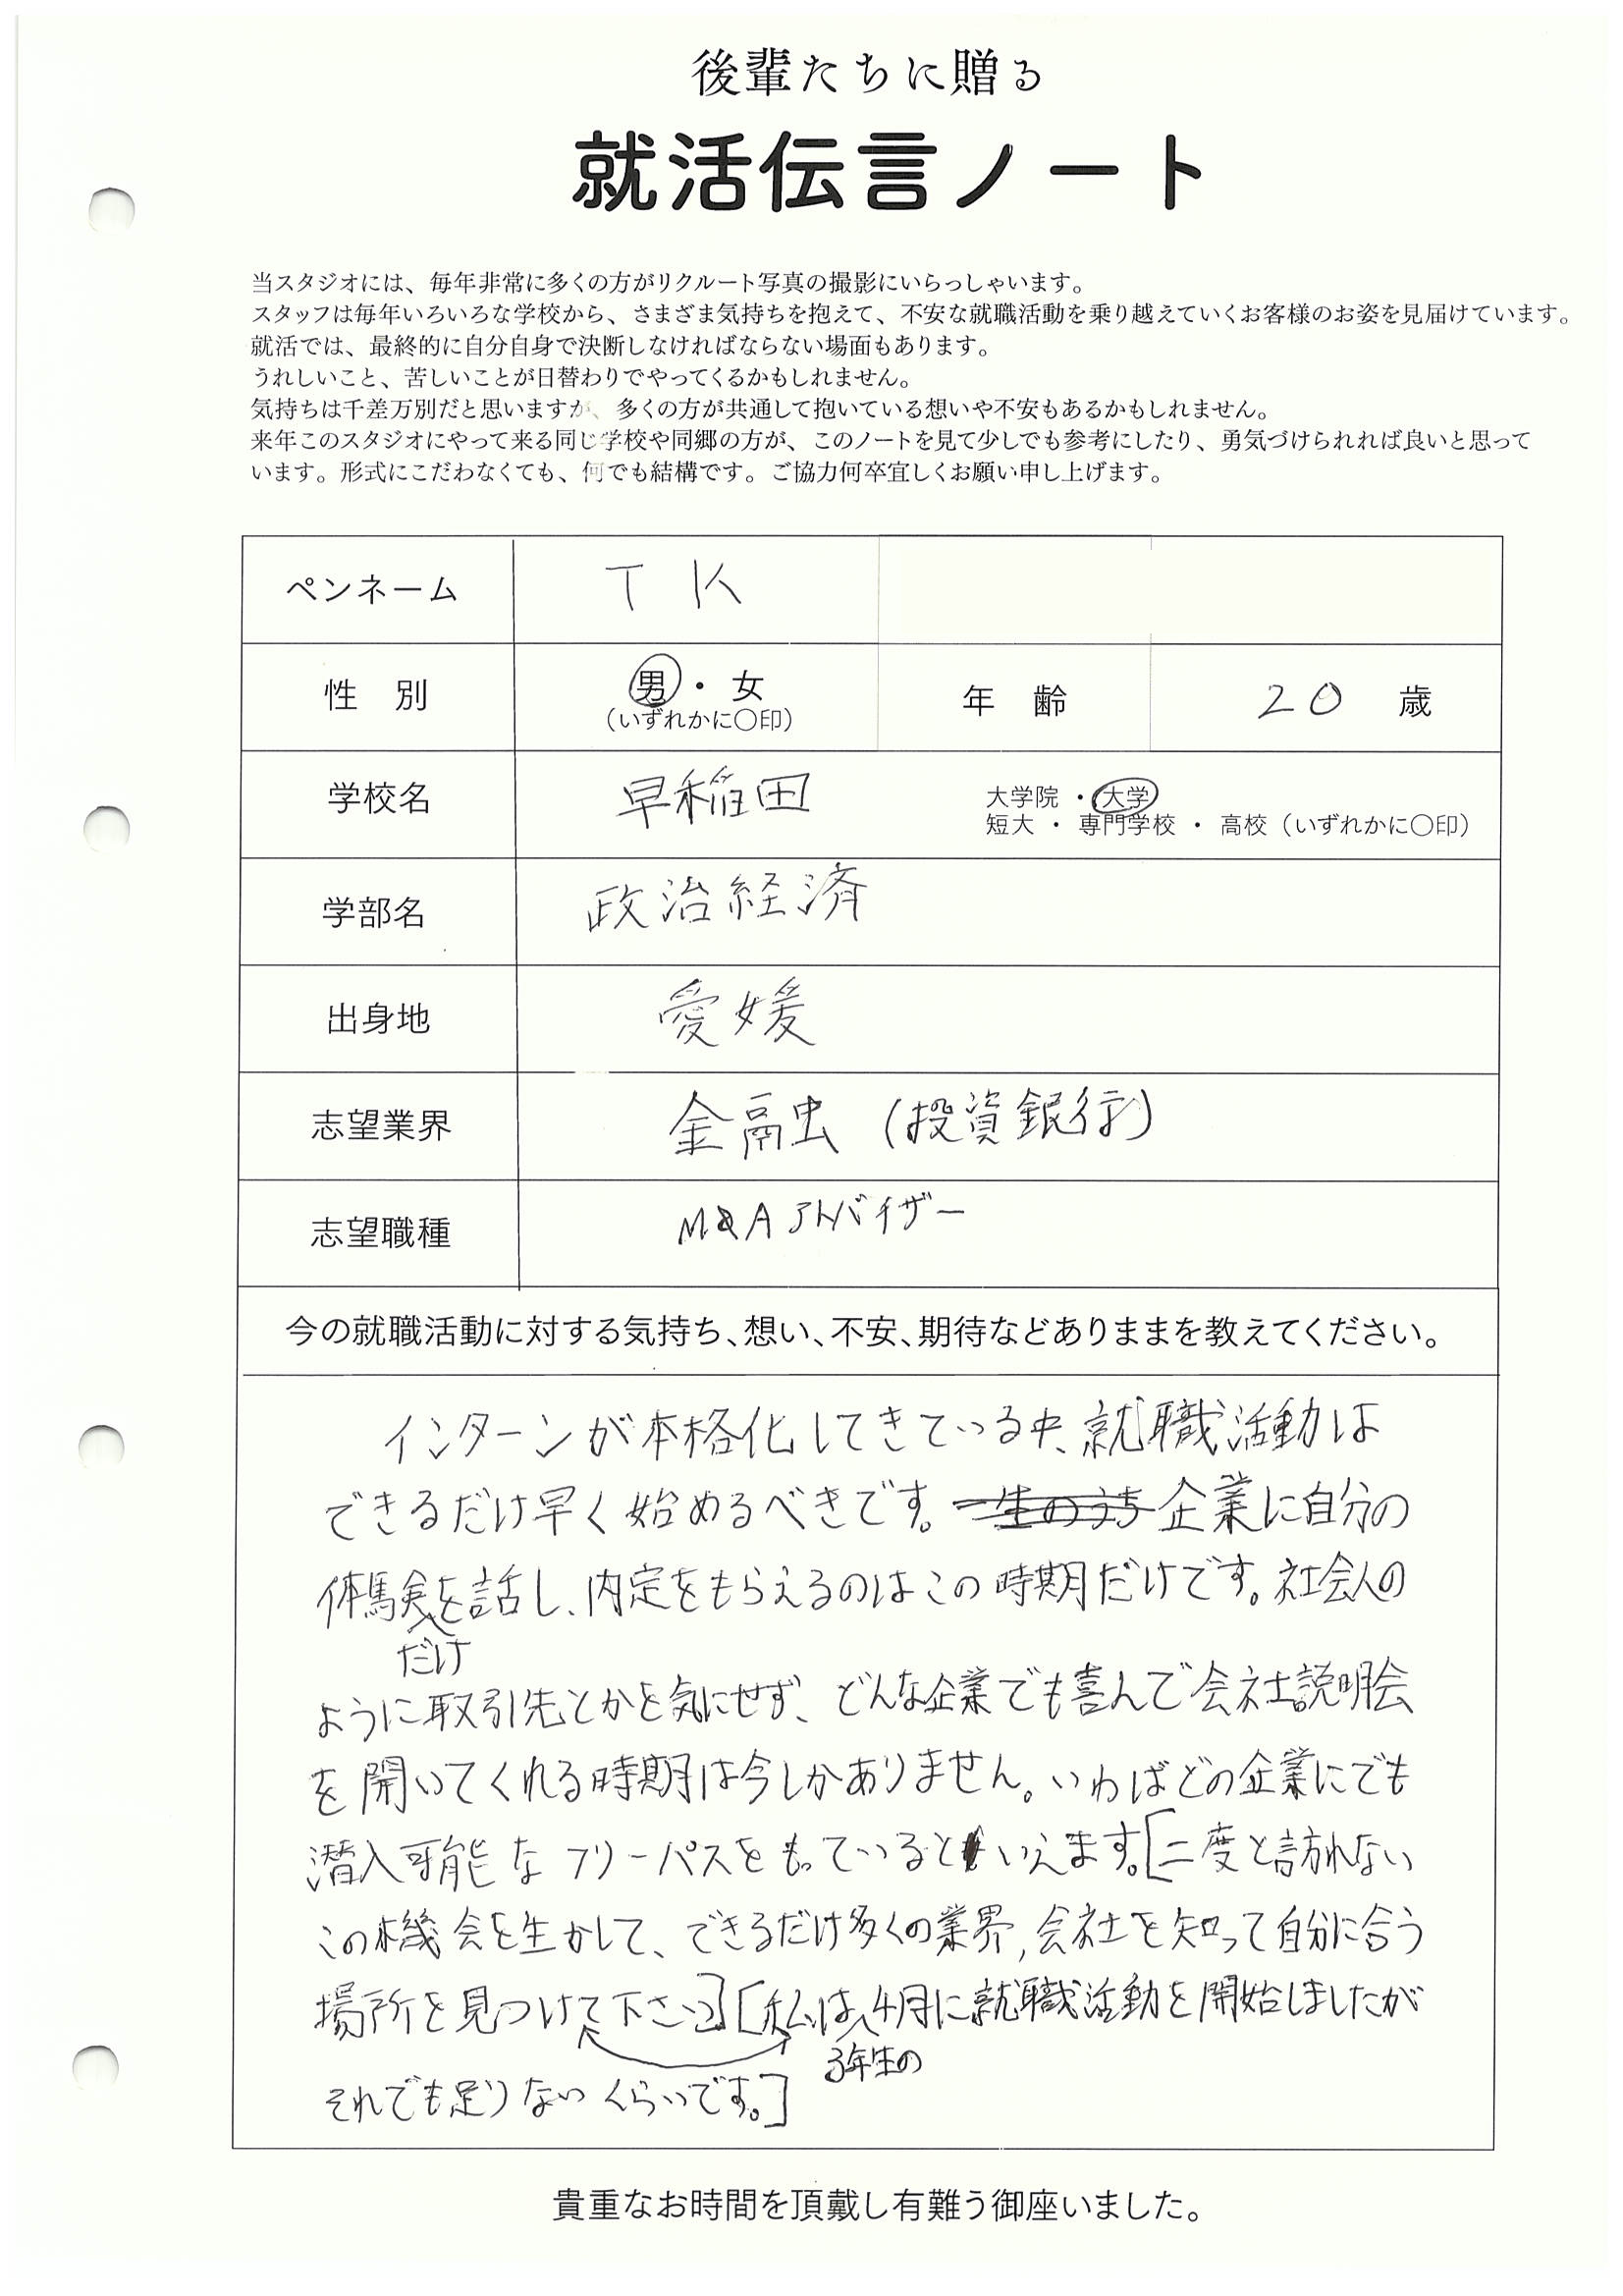 後輩たちに贈る
就活伝言ノート
当スタジオには、毎年非常に多くの方がリクルート写真の撮影にいらっしゃいます。
スタッフは毎年いろいろな学校から、さまざま気持ちを抱えて、不安な就職活動を乗り越えていくお客様のお姿を見届けています。
就活では、最終的に自分自身で決断しなければならない場面もあります。
うれしいこと、苦しいことが日替わりでやってくるかもしれません。
気持ちは千差万別だと思いますが、多くの方が共通して抱いている想いや不安もあるかもしれません。
来年このスタジオにやって来る同じ学校や同郷の方が、このノートを見て少しでも参考にしたり、勇気づけられれば良いと思って
います。形式にこだわなくても、何でも結構です。ご協力何卒宜しくお願い申し上げます。
ペンネーム TK
性 別 男・女 年 齢 20 歳
（いずれかに〇印）
学校名 早稲田 大学院 ・ 大学
短大 ・ 専門学校 ・ 高校（いずれかに〇印）
学部名 政治経済
出身地 愛媛
志望業界 金融（投資銀行）
志望職種 M&Aアドバイザー
今の就職活動に対する気持ち、想い、不安、期待などありままを教えてください。
インターンが本格化してきている中、就職活動は
できるだけ早く始めるべきです。一生のうち企業に自分の
体験を話し、内定をもらえるのはこの時期だけです。社会人の
だけ
ように取引先とかを気にせず、どんな企業でも喜んで会社説明会
を開いてくれる時期は今しかありません。いわばどの企業にでも
潜入可能なフリーパスをもっているといえます。[二度と訪れない
この機会を生かして、できるだけ多くの業界,会社を知って自分に合う
場所を見つけて下さい][私は4月に就職活動を開始しましたが
3年生の
それでも足りないくらいです。]
貴重なお時間を頂戴し有難う御座いました。